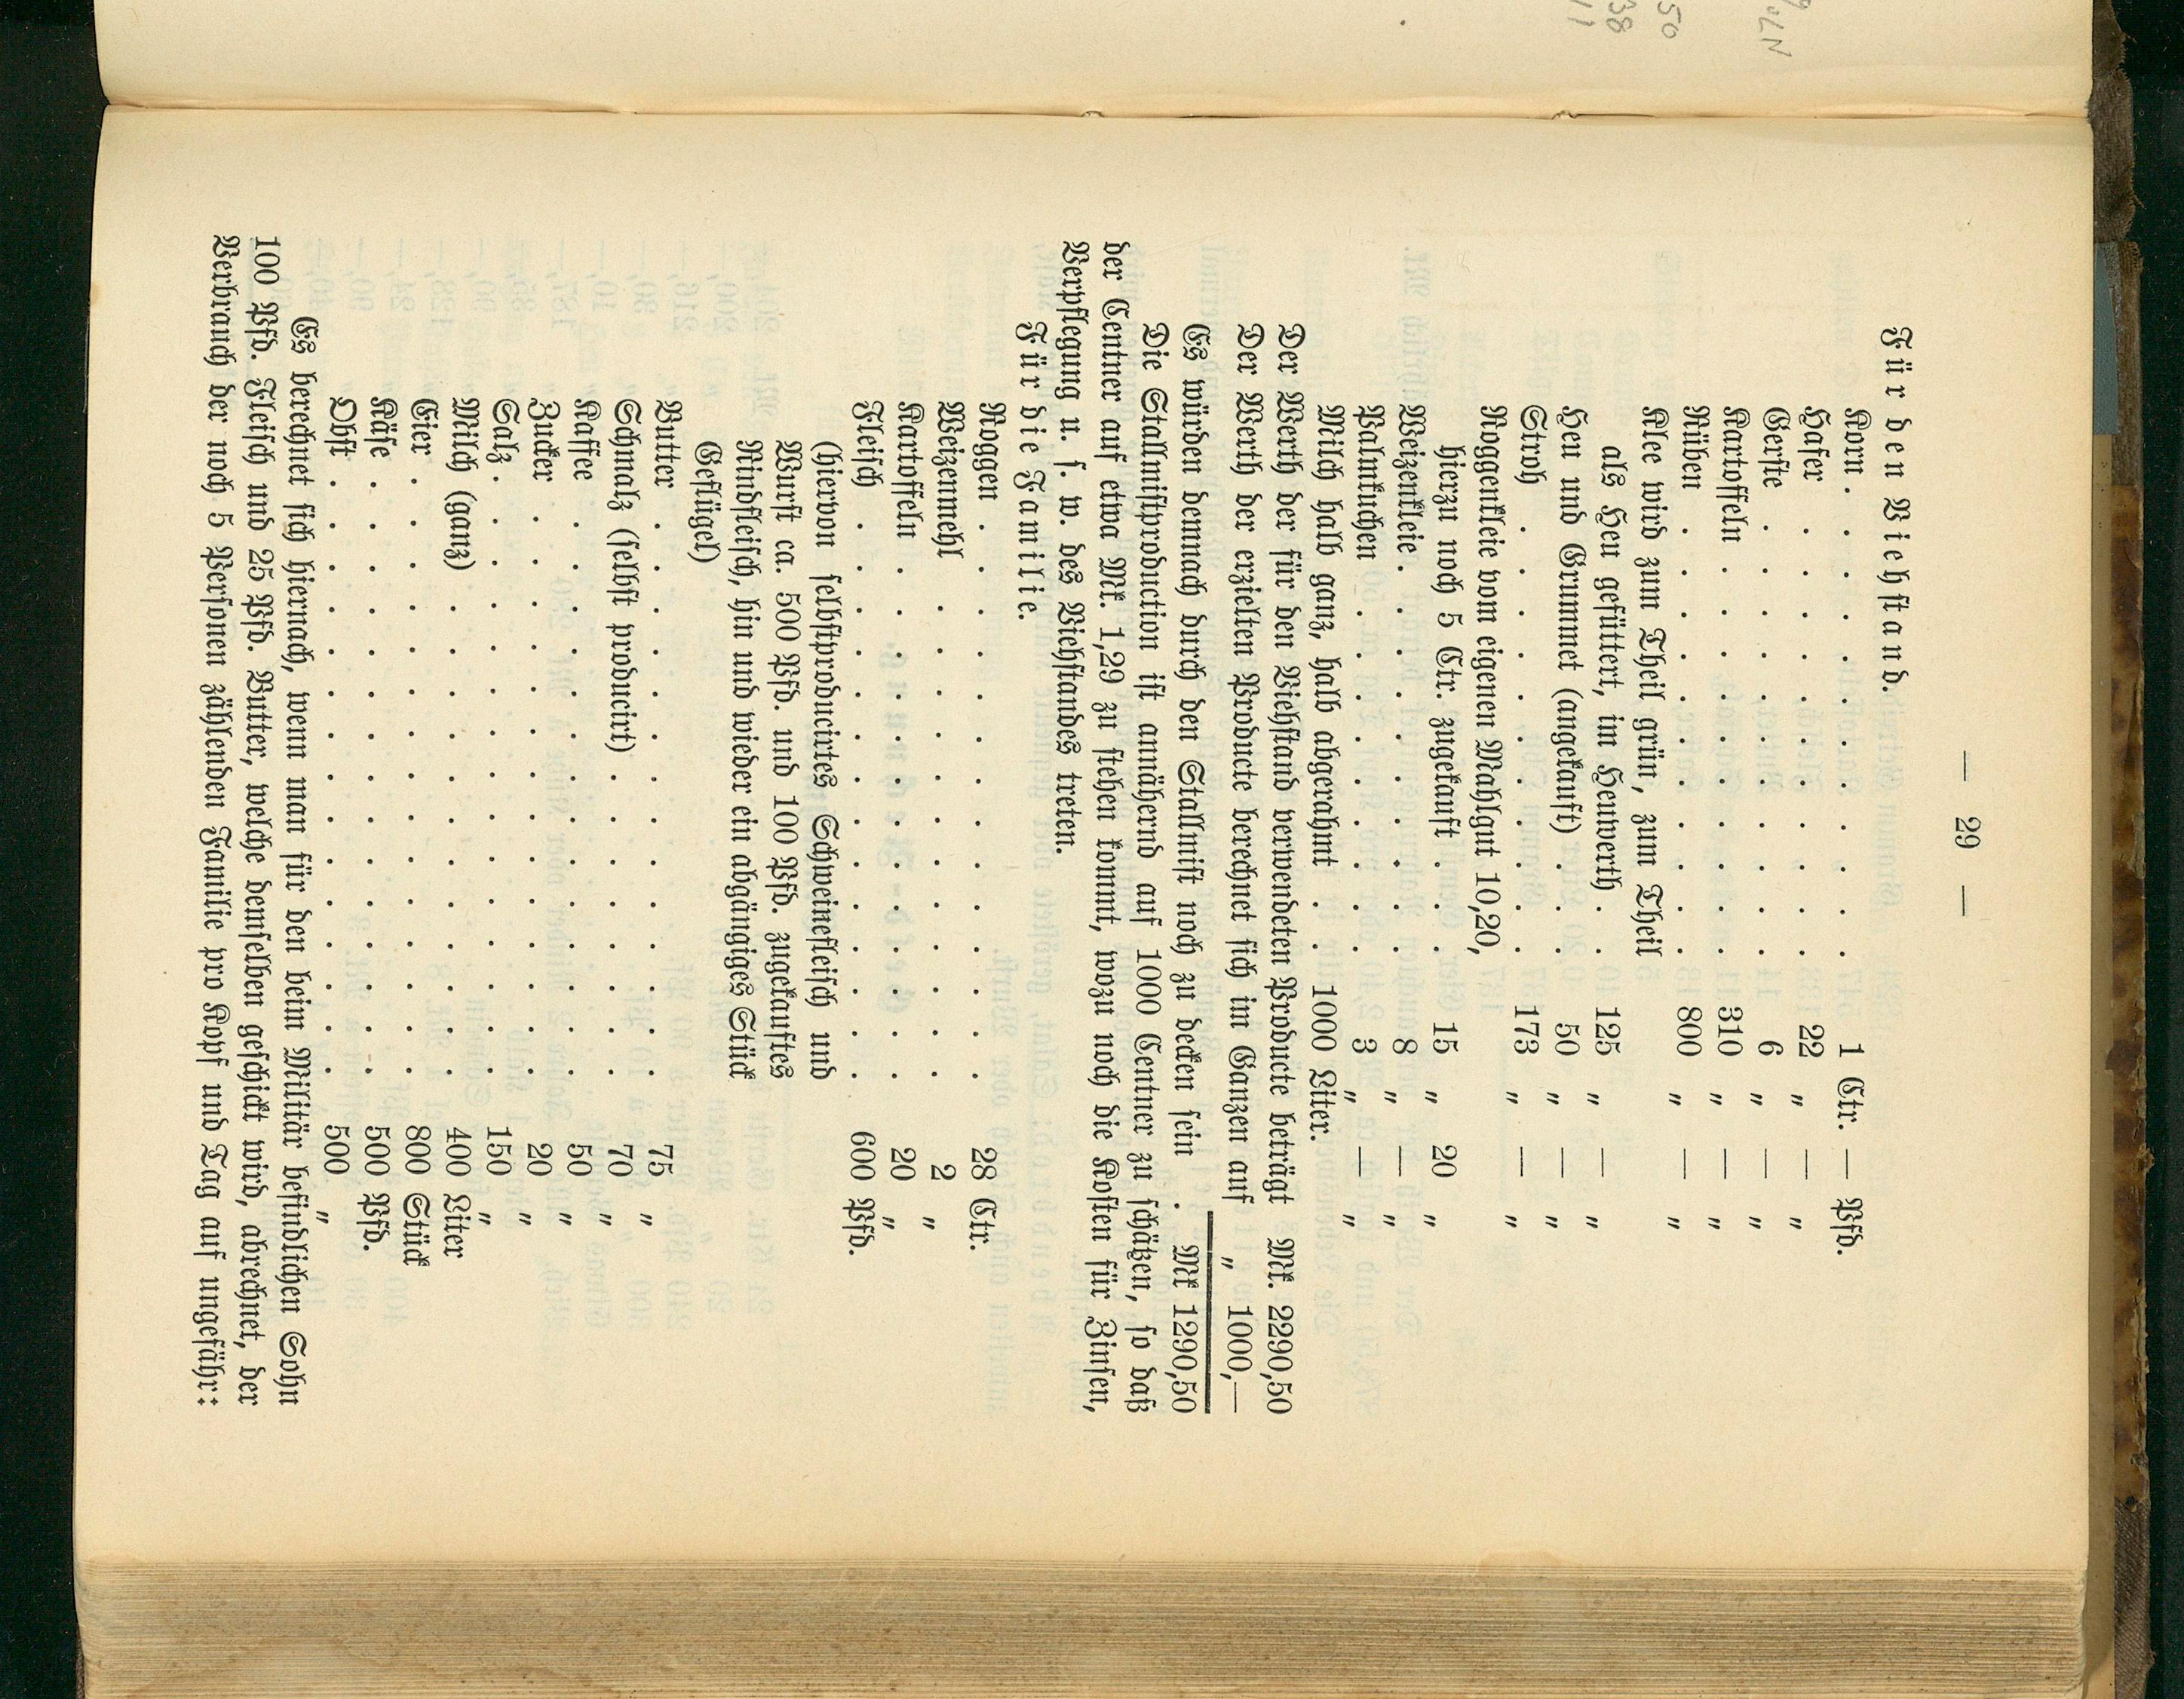 — 29 —
Für den Viehstand.
Korn . . . . . . . . . . . 1 Ctr. — Pfd.
Hafer . . . . . . . . . . . 22 " — "
Gerste . . . . . . . . . . . 6 " — "
Kartoffeln . . . . . . . . . . 310 " — "
Rüben . . . . . . . . . . . 800 " — "
Klee wird zum Theil grün, zum Theil
als Heu gefüttert, im Heuwerth . . 125 " — "
Heu und Grummet (angekauft) . . . 50 " — "
Stroh . . . . . . . . . . . 173 " — "
Roggenkleie vom eigenen Mahlgut 10,20,
hierzu noch 5 Ctr. zugekauft . . . 15 " 20 "
Weizenkleie . . . . . . . . . . 8 " — "
Palmkuchen . . . . . . . . . 3 " — "
Milch halb ganz, halb abgerahmt . . 1000 Liter.
Der Werth der für den Viehstand verwendeten Producte beträgt Mk. 2290,50
Der Werth der erzielten Producte berechnet sich im Ganzen auf " 1000,—
Es würden demnach durch den Stallmist noch zu decken sein . Mk 1290,50
Die Stallmistproduction ist annähernd auf 1000 Centner zu schätzen, so daß
der Centner auf etwa Mk. 1,29 zu stehen kommt, wozu noch die Kosten für Zinsen,
Verpflegung u. s. w. des Viehstandes treten.
Für die Familie.
Roggen . . . . . . . . . . . . . . 28 Ctr.
Weizenmehl . . . . . . . . . . . . 2 "
Kartoffeln . . . . . . . . . . . . . 20 "
Fleisch . . . . . . . . . . . . . . 600 Pfd.
(hiervon selbstproducirtes Schweinefleisch und
Wurst ca. 500 Pfd. und 100 Pfd. zugekauftes
Rindfleisch, hin und wieder ein abgängiges Stück
Geflügel)
Butter . . . . . . . . . . . . . . 75 "
Schmalz (selbst producirt) . . . . . . . . 70 "
Kaffee . . . . . . . . . . . . . . 50 "
Zucker . . . . . . . . . . . . . . 20 "
Salz . . . . . . . . . . . . . . . 150 "
Milch (ganz) . . . . . . . . . . . . 400 Liter
Eier . . . . . . . . . . . . . . . 800 Stück
Käse . . . . . . . . . . . . . . . 500 Pfd.
Obst . . . . . . . . . . . . . . . 500 "
Es berechnet sich hiernach, wenn man für den beim Militär befindlichen Sohn
100 Pfd. Fleisch und 25 Pfd. Butter, welche demselben geschickt wird, abrechnet, der
Verbrauch der noch 5 Personen zählenden Familie pro Kopf und Tag auf ungefähr:
50
38
11